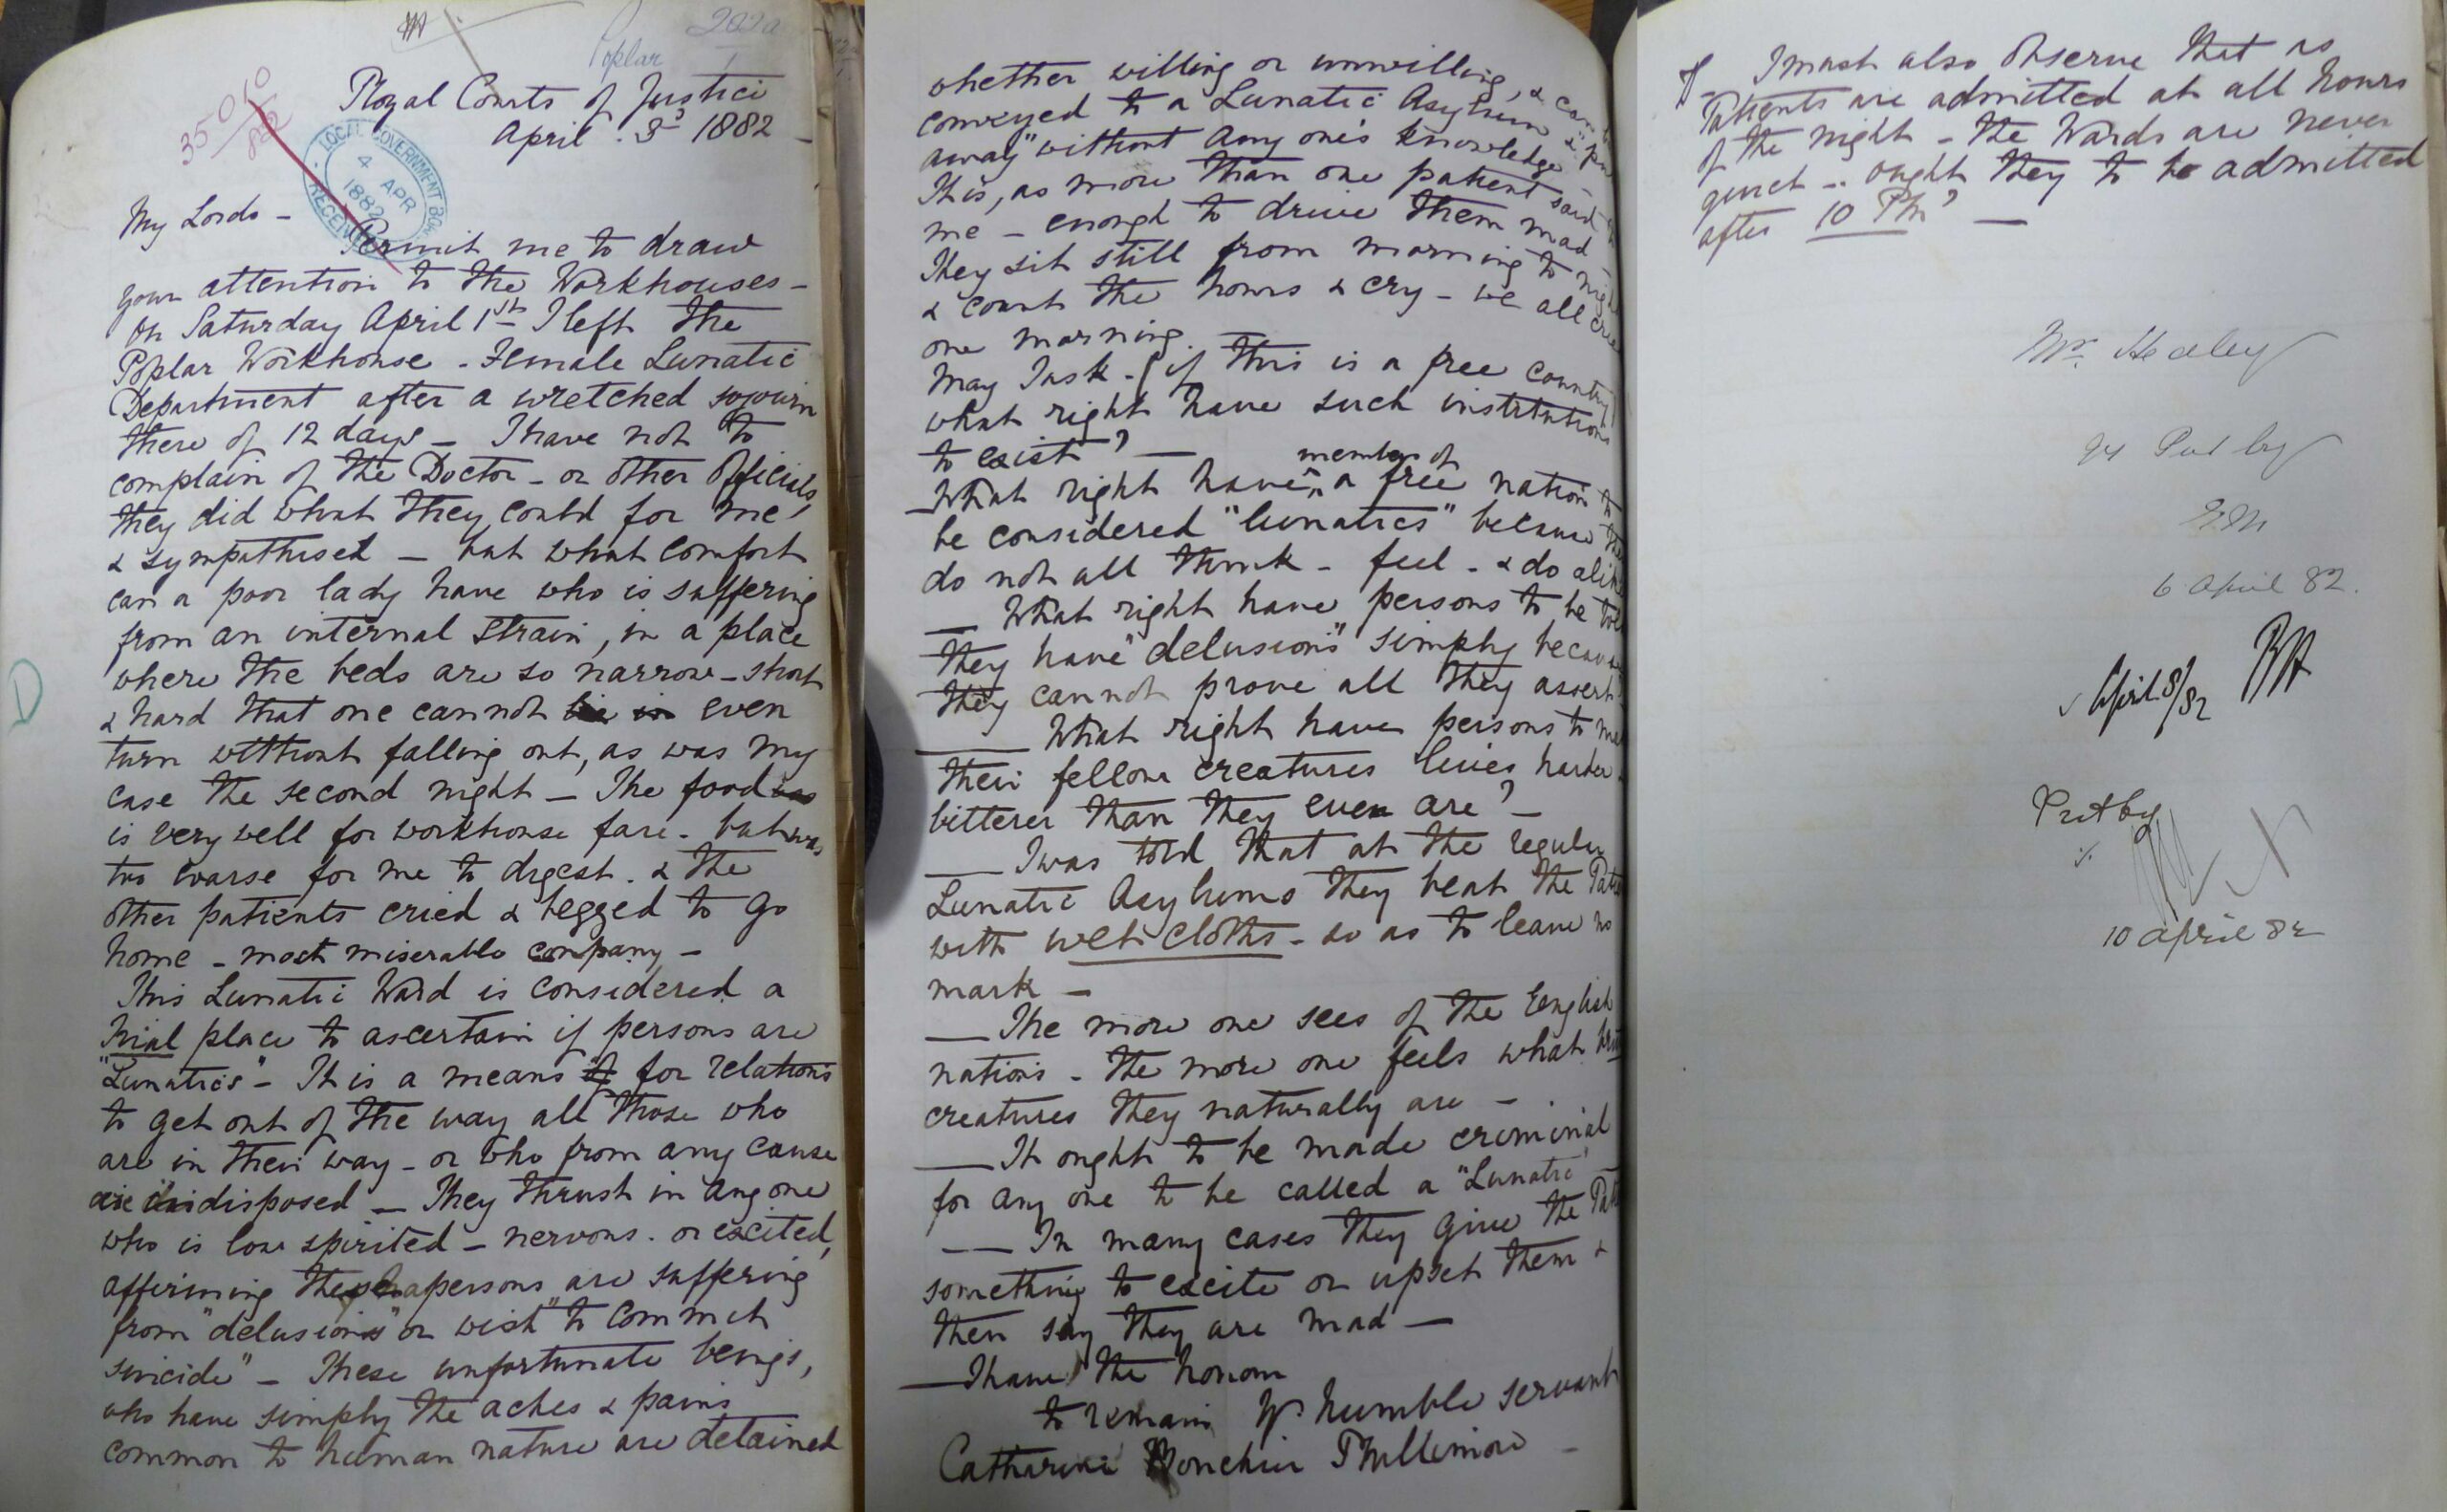 202a
1
Poplar
35010
82
Royal Courts of Justice
April. 3 1882
LOCAL GOVERNMENT BO
4 APR
1882
RECEIVE
My Lords -
Permit me to draw
your attention to the Workhouses -
On Saturday April 1st I left the
Poplar Workhouse - Female Lunatic
Department after a wretched sojourn
there of 12 days - I have not to
complain of the Doctor - or other Officials,
they did what they could for me
& sympathised - but what comfort
can a poor lady have who is suffering
from an internal strain, in a place
where the beds are so narrow - short
& hard that one cannot even
turn without falling out, as was my
case the second night - The food
is very well for workhouse fare - but was
too coarse for me to digest. & the
other patients cried & begged to go
home - most miserable company -
This Lunatic Ward is considered a
trial place to ascertain if persons are
"Lunatics" - It is a means for relations
to get out of the way all those who
are in their way - or who from any cause
are indisposed - They thrust in any one
who is low spirited - nervous. or excited,
affirming the persons are suffering
from "delusions" or wish "to commit
suicide" - These unfortunate beings,
who have simply the aches & pains
common to human nature are detained
D
whether willing or unwilling, &
conveyed to a Lunatic Asylum &
away" without any one's knowledge -
It is, as more than one patient said
me - enough to drive them mad -
They sit still from morning to
& count the hours & cry - we all
one morning.
May I ask - (if this is a free country)
what right have such institutions
to exist? -
What right have members of a free nation to
be considered "lunatics" because
do not all think - feel - & do
- What right have persons to be
they have "delusions" simply because
they cannot prove all they assert
What right have persons to
their fellow creatures lives harder
bitterer than they even are? -
- I was told that at the regular
Lunatic Asylums they beat the
with wet cloths - so as to leave no
mark -
- The more one sees of the English
nations - the more one feels what
creatures they naturally are -
- It ought to be made criminal
for any one to be called a "Lunatic"
-- In many cases they give the
something to excite or upset them &
then say they are mad -
- I have the honour
to remain Yr humble servant
Catharine Bonchier Phillimore -
I must also observe that as
Patients are admitted at all hours
of the night - the Wards are never
quiet - ought they to be admitted
after 10 PM? -
Mr. Healey
Put by
6 April 82.
April 8/82
Put by
10 April 82